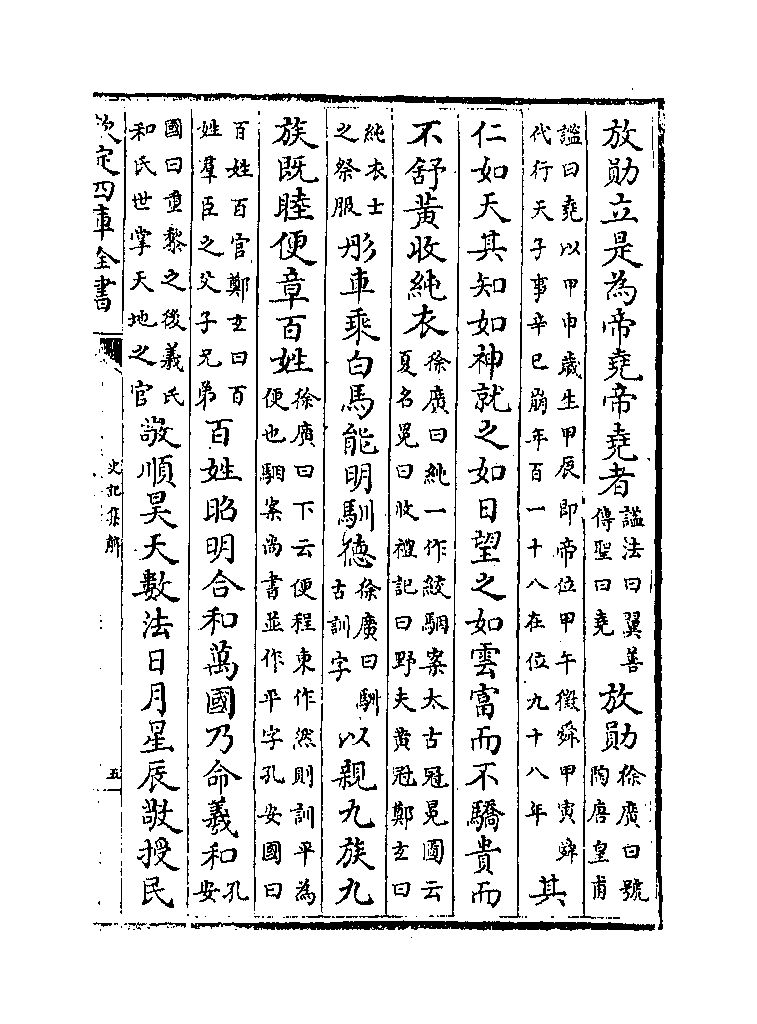 放勛立是為帝堯帝堯者諡法曰翼善傳聖曰堯放勛徐廣曰號陶唐皇甫
諡曰堯以甲申歲生甲辰即帝位甲午徵舜甲寅舜代行天子事辛巳崩年百一十八在位九十八年其
仁如天其知如神就之如日望之如雲富而不驕貴而
不舒黃收純衣徐廣曰純一作絞駰案太古冠冕圖云夏名冕曰收禮記曰野夫黃冠鄭玄曰
純衣士之祭服彤車乘白馬能明馴德徐廣曰馴古訓字以親九族九
族既睦便章百姓徐廣曰下云便程東作然則訓平為便也駰案尚書並作平字孔安國曰
百姓百官鄭玄曰百姓羣臣之父子兄弟百姓昭明合和萬國乃命羲和孔安
國曰重黎之後羲氏和氏世掌天地之官敬順昊天數法日月星辰敬授民
欽定四庫全書
史記集解
五